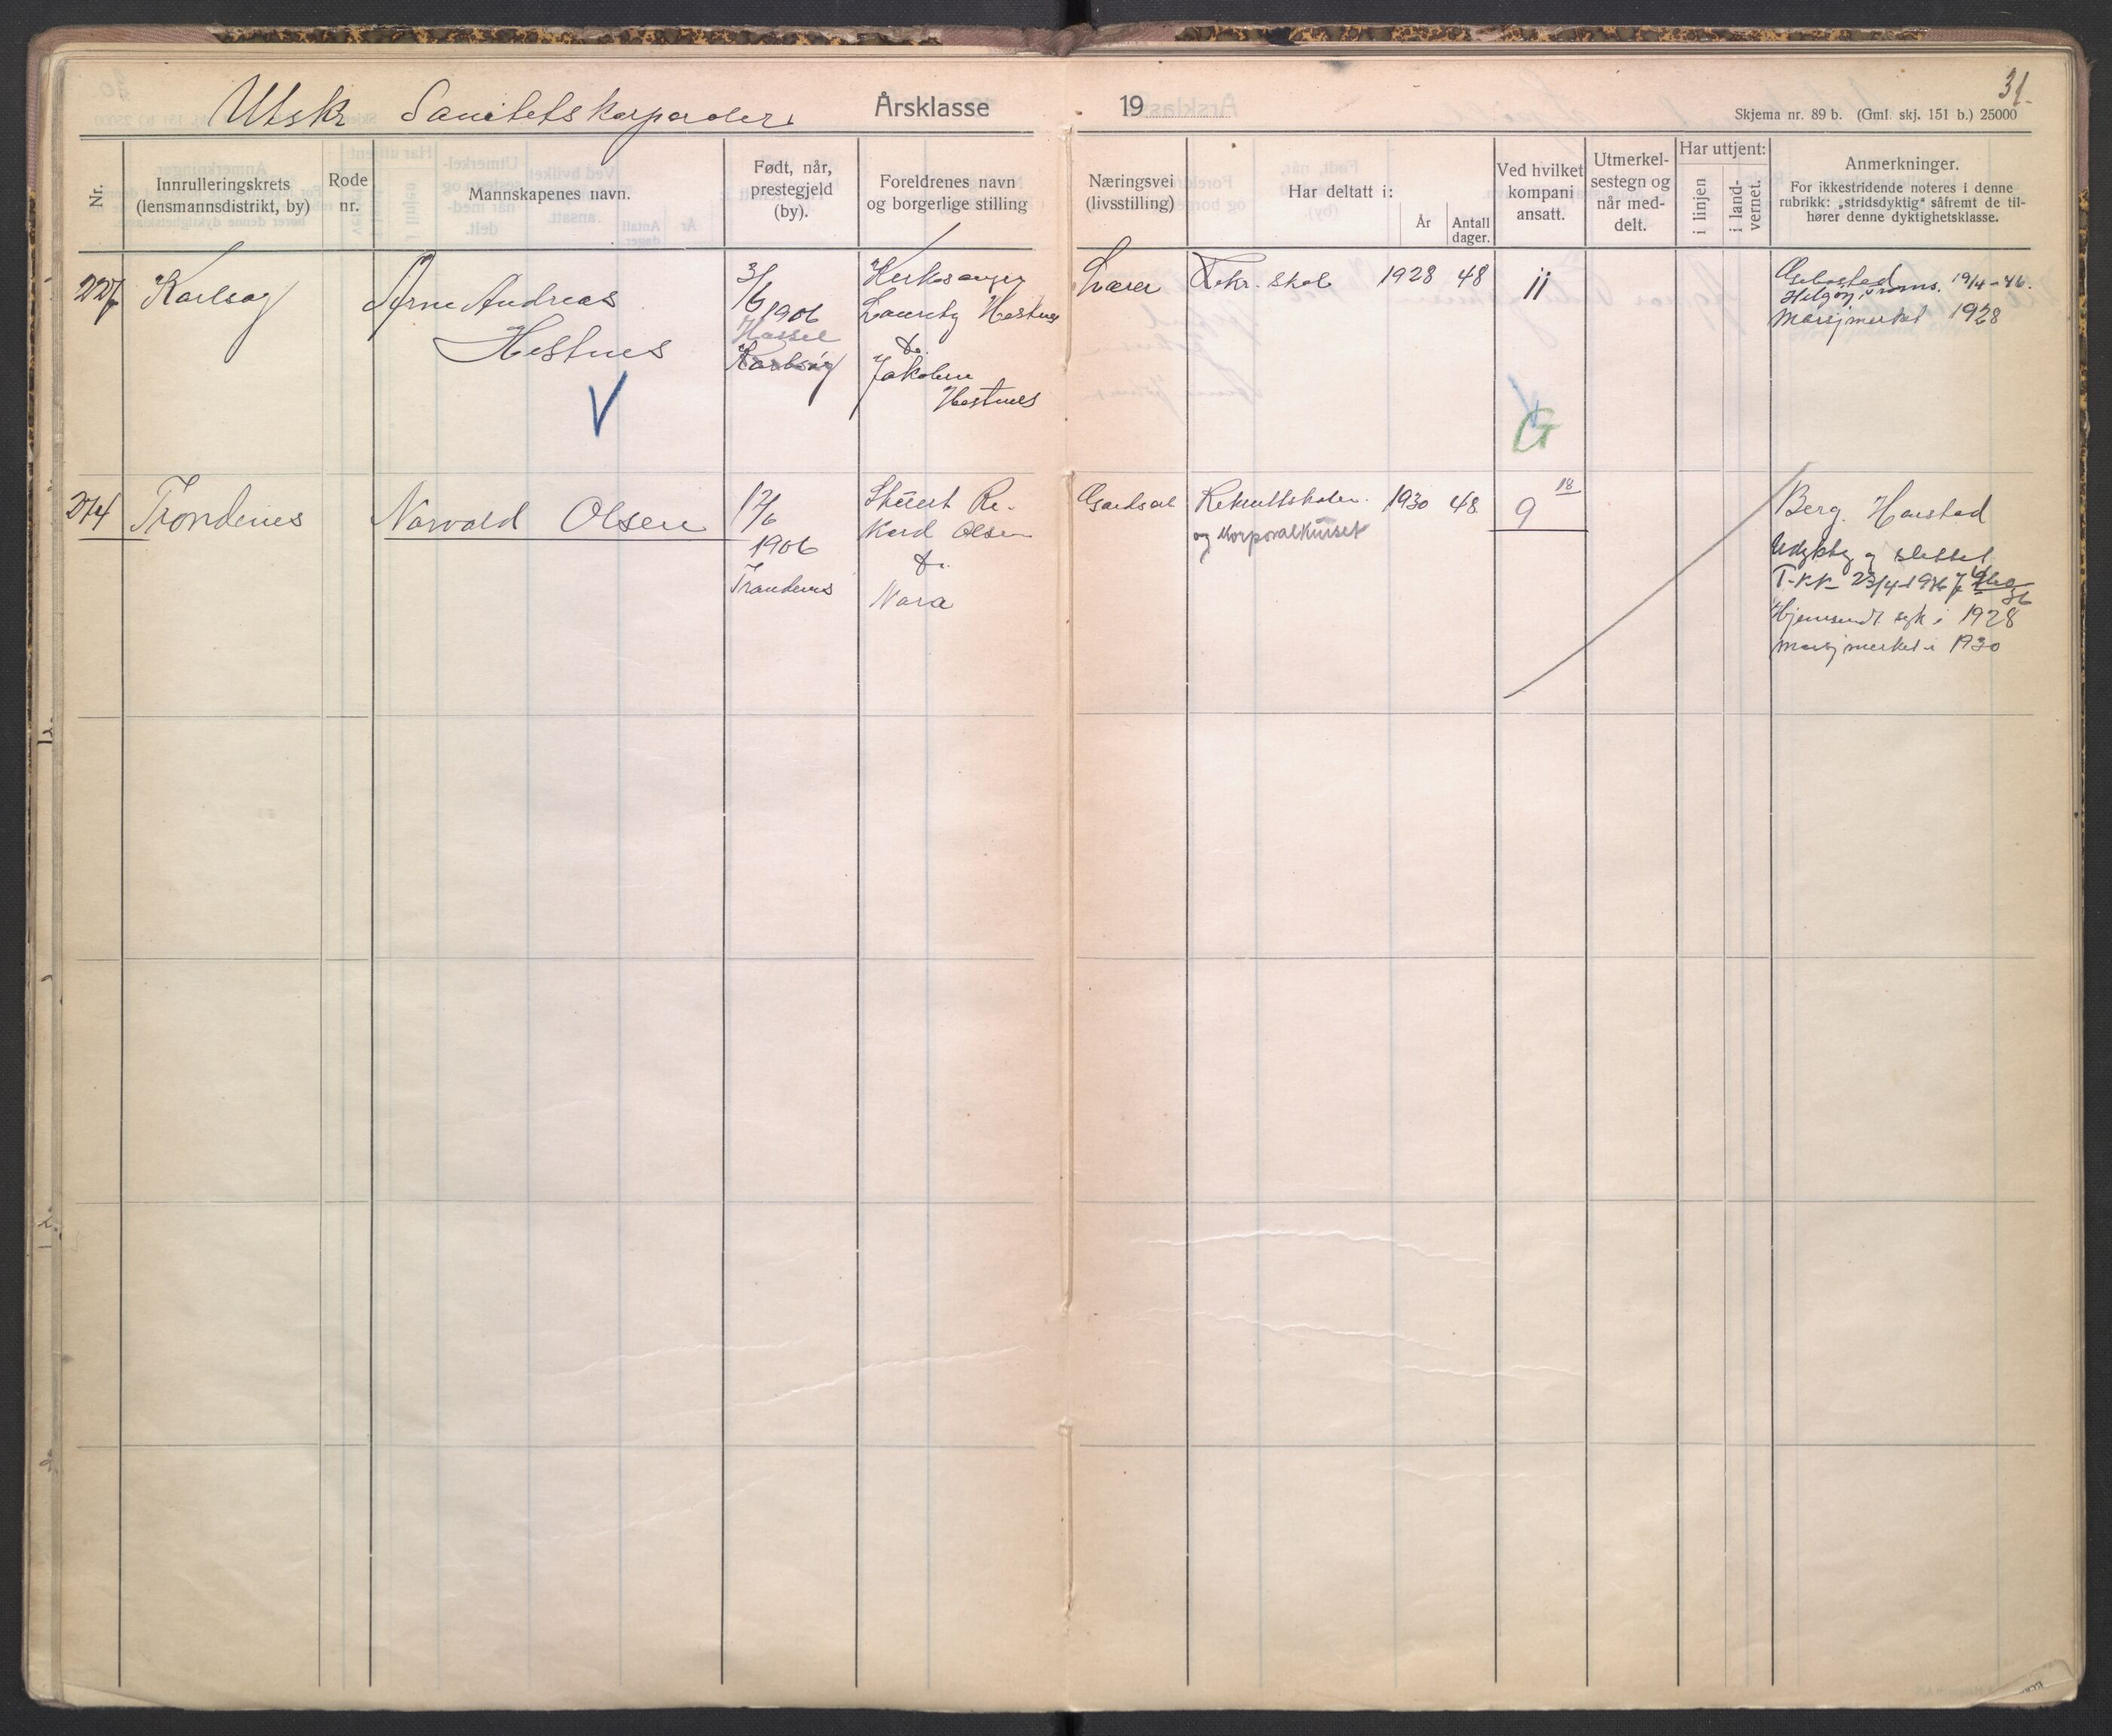 Utskr Sanitetskorporaler
Årsklasse 19
31.
Skjema nr. 89 b. (Gml. skj. 151 b.) 25000
Nr.
Innrulleringskrets
(lensmannsdistrikt, by)
Rode
nr.
Mannskapenes navn.
Født, når,
prestegjeld
(by).
Foreldrenes navn
og borgerlige stilling
Næringsvei
(livsstilling)
Har deltatt i:
År
Antall
dager.
Ved hvilket
kompani
ansatt.
Utmerkel-
sestegn og
når med-
delt.
Har uttjent:
i linjen
i land-
vernet.
Anmerkninger.
For ikkestridende noteres i denne
rubrikk: „stridsdyktig" såfremt de til-
hører denne dyktighetsklasse.
227
Karlsøy
Arne Andreas
Hestnes
V
3/6 1906
Hassel
Karlsøy
Kirkesanger
Hestnes
&
Jakobine
Hestnes
Lærer
Rekr. skole 1928 48
11
G
Helgøy, Troms. 19/4-46.
Marsjmerket 1928
274
Trondenes
Narvald Olsen
17/6
1906
Trondenes
Rikard Olsen
&
Nora
Gaardsarb
Rekruttskolen 1930 48
og Korporalkurset
9
18
Berg. Harstad
Udyktig og slettet
T-KK- 23/4-1936
Hjemsendt syk i 1928
marsjmerket i 1930